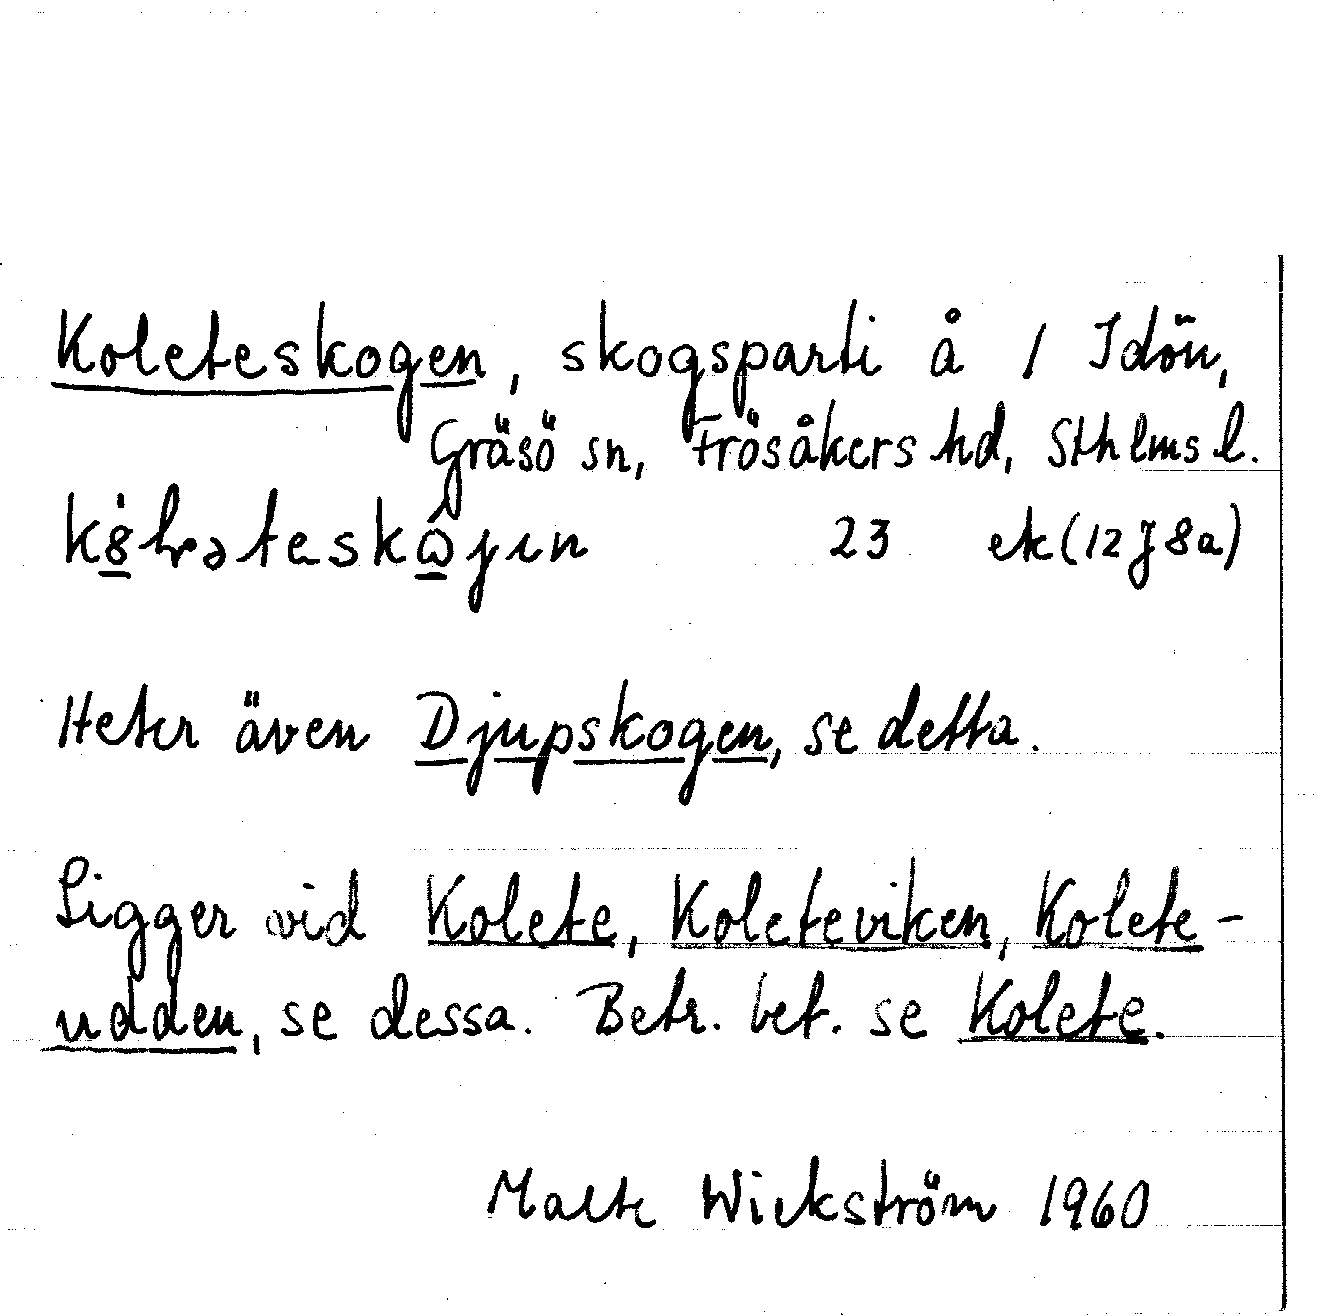 Koleteskogen, skogsparti å 1 Idön,
Gräsö sn, Frösåkers hd, Sthlms l.
23 ek (12 J 8a)
Heter även Djupskogen, se detta.
Ligger vid Kolete, Koleteviken, Kolete-
udden, se dessa. Betr. bet. se Kolete.
Malte Wickström 1960